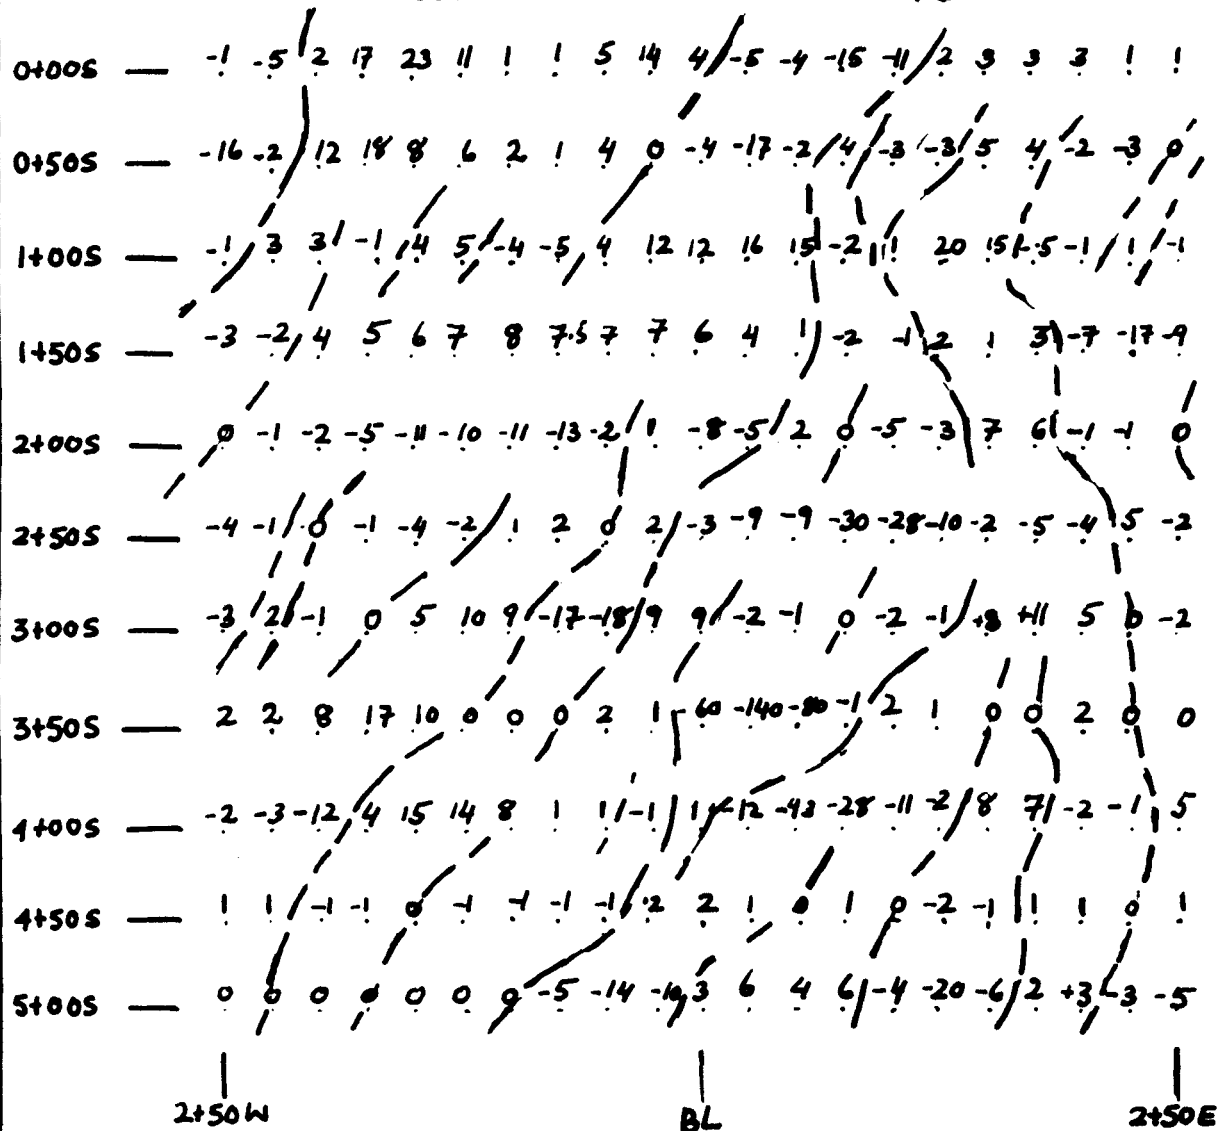 0+00S — -1 -5 2 17 23 11 1 1 5 14 4 -5 -4 -15 -11 2 3 3 3 1 1
0+50S — -16 -2 12 18 8 6 2 1 4 0 -4 -17 -2 4 -3 -3 5 4 -2 -3 0
1+00S — -1 3 3 -1 4 5 -4 -5 4 12 12 16 15 -2 1 20 15 -5 -1 1 -1
1+50S — -3 -2 4 5 6 7 8 7.5 7 7 6 4 1 -2 -1 2 1 3 -7 -17 -9
2+00S — 0 -1 -2 -5 -11 -10 -11 -13 -2 1 -8 -5 2 0 -5 -3 7 6 -1 -1 0
2+50S — -4 -1 0 -1 -4 -2 1 2 0 2 -3 -9 -9 -30 -28 -10 -2 -5 -4 5 -2
3+00S — -3 2 -1 0 5 10 9 -17 -18 9 9 -2 -1 0 -2 -1 +8 +11 5 0 -2
3+50S — 2 2 8 17 10 0 0 0 2 1 -60 -140 -80 -1 2 1 0 0 2 0 0
4+00S — -2 -3 -12 4 15 14 8 1 1 -1 1 -12 -43 -28 -11 -2 8 7 -2 -1 5
4+50S — 1 1 -1 -1 0 -1 -1 -1 -1 2 2 1 0 1 0 -2 -1 1 1 0 1
5+00S — 0 0 0 0 0 0 0 -5 -14 -10 3 6 4 6 -4 -20 -6 2 +3 -3 -5
2+50W BL 2+50E